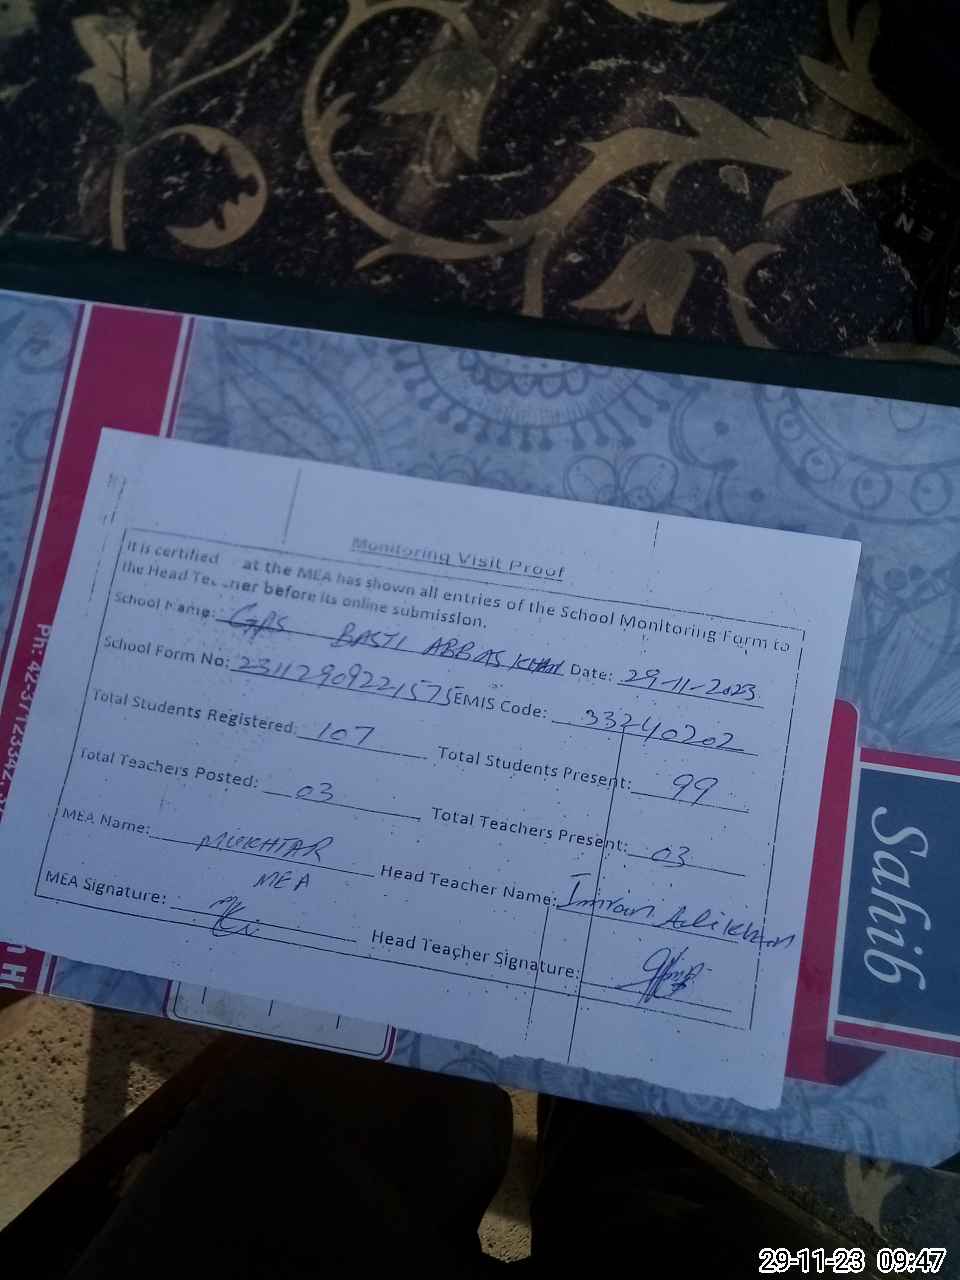 Monitoring Visit Proof
It is certified at the MEA has shown all entries of the School Monitoring Form to
the Head Teacher before its online submission.
School Name: GPS BASTI ABBAS KHAN Date: 29-11-2023
School Form No: EMIS Code: 33240202
Total Students Registered: 107 Total Students Present: 99
Total Teachers Posted: 03 Total Teachers Present: 03
MEA Name: MUKHTAR Head Teacher Name: Imran Ali Khan
MEA
MEA Signature: Head Teacher Signature:
Sahib
29-11-23 09:47